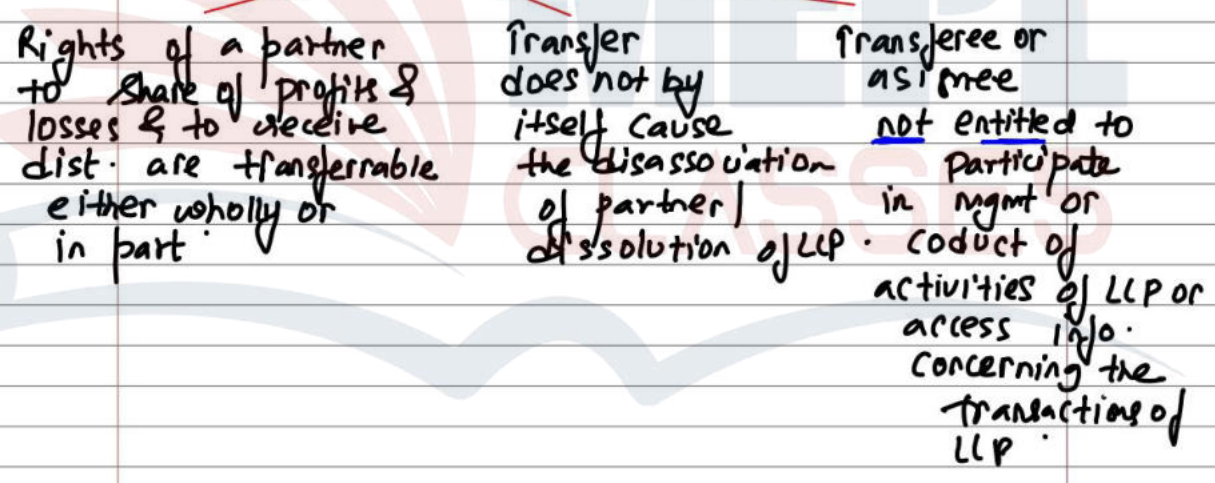 Rights of a partner
to share of profits &
losses & to receive
dist. are transferrable
either wholly or
in part.
Transfer
does not by
itself cause
the disassociation
of partner/
dissolution of LLP.
Transferee or
asignee
not entitled to
participate
in mgmt or
coduct of
activities of LLP or
access info.
concerning the
transactions of
LLP.
CLASSES